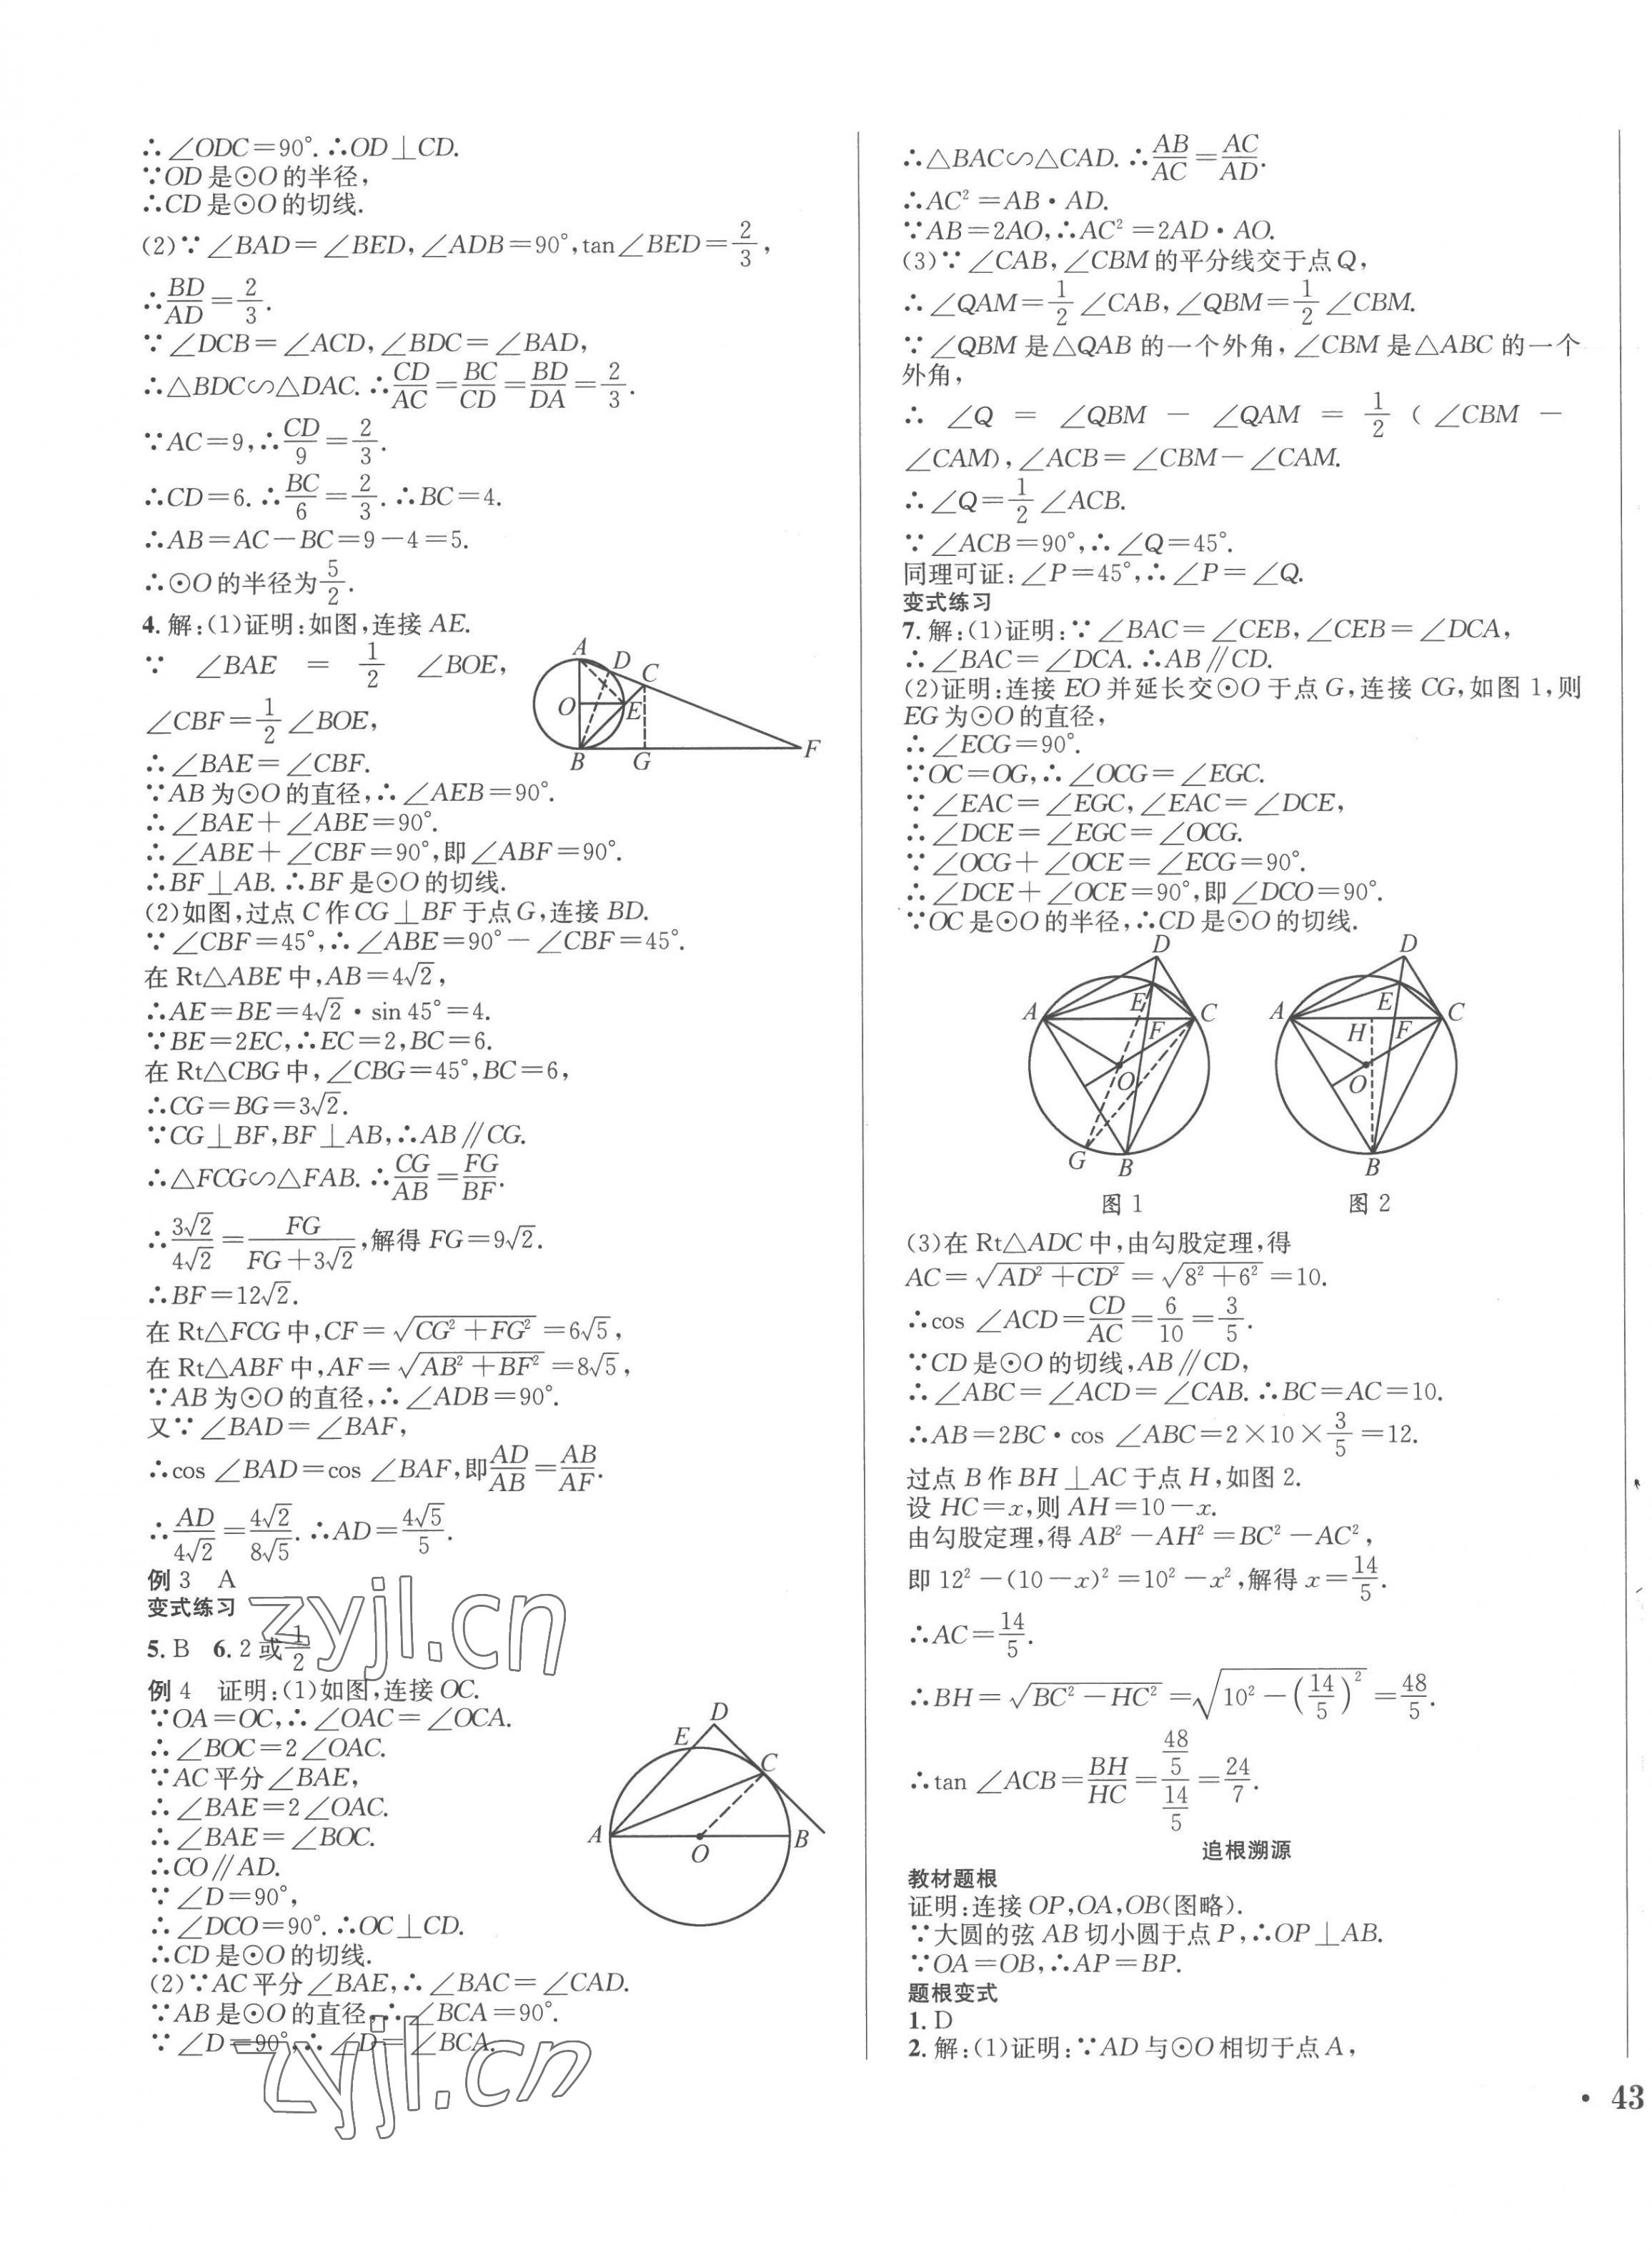 ∴∠ODC=90°. ∴OD⊥CD.
∵OD是⊙O的半径,
∴CD是⊙O的切线.
(2)∵∠BAD=∠BED,∠ADB=90°,tan∠BED=2/3,
∴BD/AD=2/3.
∵∠DCB=∠ACD,∠BDC=∠BAD,
∴△BDC∽△DAC. ∴CD/AC=BC/CD=BD/DA=2/3.
∵AC=9,∴CD/9=2/3.
∴CD=6. ∴BC/6=2/3. ∴BC=4.
∴AB=AC-BC=9-4=5.
∴⊙O的半径为5/2.
4. 解:(1)证明:如图,连接AE.
∵ ∠BAE = 1/2 ∠BOE,
∠CBF=1/2∠BOE,
∴∠BAE=∠CBF.
∵AB为⊙O的直径,∴∠AEB=90°.
∴∠BAE+∠ABE=90°.
∴∠ABE+∠CBF=90°,即∠ABF=90°.
∴BF⊥AB. ∴BF是⊙O的切线.
(2)如图,过点C作CG⊥BF于点G,连接BD.
∵∠CBF=45°,∴∠ABE=90°-∠CBF=45°.
在Rt△ABE中,AB=4√2,
∴AE=BE=4√2·sin 45°=4.
∵BE=2EC,∴EC=2,BC=6.
在Rt△CBG中,∠CBG=45°,BC=6,
∴CG=BG=3√2.
∵CG⊥BF,BF⊥AB,∴AB∥CG.
∴△FCG∽△FAB. ∴CG/AB=FG/BF.
∴3√2/4√2=FG/(FG+3√2),解得FG=9√2.
∴BF=12√2.
在Rt△FCG中,CF=√(CG²+FG²)=6√5,
在Rt△ABF中,AF=√(AB²+BF²)=8√5,
∵AB为⊙O的直径,∴∠ADB=90°.
又∵∠BAD=∠BAF,
∴cos∠BAD=cos∠BAF,即AD/AB=AB/AF.
∴AD/4√2=4√2/8√5. ∴AD=4√5/5.
例3 A
变式练习
5. B 6. 2或1/2
例4 证明:(1)如图,连接OC.
∵OA=OC,∴∠OAC=∠OCA.
∴∠BOC=2∠OAC.
∵AC平分∠BAE,
∴∠BAE=2∠OAC.
∴∠BAE=∠BOC.
∴CO∥AD.
∵∠D=90°,
∴∠DCO=90°. ∴OC⊥CD.
∴CD是⊙O的切线.
(2)∵AC平分∠BAE,∴∠BAC=∠CAD.
∵AB是⊙O的直径,∴∠BCA=90°.
∵∠D=90°,∴∠D=∠BCA.
A
D
C
O
E
B
G
F
D
E
C
A
O
B
zyjl.cn
zyjl.cn
∴△BAC∽△CAD. ∴AB/AC=AC/AD.
∴AC²=AB·AD.
∵AB=2AO,∴AC²=2AD·AO.
(3)∵∠CAB,∠CBM的平分线交于点Q,
∴∠QAM=1/2∠CAB,∠QBM=1/2∠CBM.
∵∠QBM是△QAB的一个外角,∠CBM是△ABC的一个
外角,
∴ ∠Q = ∠QBM - ∠QAM = 1/2 (∠CBM -
∠CAM),∠ACB=∠CBM-∠CAM.
∴∠Q=1/2∠ACB.
∵∠ACB=90°,∴∠Q=45°.
同理可证:∠P=45°,∴∠P=∠Q.
变式练习
7. 解:(1)证明:∵∠BAC=∠CEB,∠CEB=∠DCA,
∴∠BAC=∠DCA. ∴AB∥CD.
(2)证明:连接EO并延长交⊙O于点G,连接CG,如图1,则
EG为⊙O的直径,
∴∠ECG=90°.
∵OC=OG,∴∠OCG=∠EGC.
∵∠EAC=∠EGC,∠EAC=∠DCE,
∴∠DCE=∠EGC=∠OCG.
∵∠OCG+∠OCE=∠ECG=90°.
∴∠DCE+∠OCE=90°,即∠DCO=90°.
∵OC是⊙O的半径,∴CD是⊙O的切线.
D
A
E
C
F
O
G
B
图1
D
A
E
C
H
F
O
B
图2
(3)在Rt△ADC中,由勾股定理,得
AC=√(AD²+CD²)=√(8²+6²)=10.
∴cos∠ACD=CD/AC=6/10=3/5.
∵CD是⊙O的切线,AB∥CD,
∴∠ABC=∠ACD=∠CAB. ∴BC=AC=10.
∴AB=2BC·cos∠ABC=2×10×3/5=12.
过点B作BH⊥AC于点H,如图2.
设HC=x,则AH=10-x.
由勾股定理,得AB²-AH²=BC²-AC²,
即12²-(10-x)²=10²-x²,解得x=14/5.
∴AC=14/5.
∴BH=√(BC²-HC²)=√(10²-(14/5)²)=48/5.
∴tan∠ACB=BH/HC=(48/5)/(14/5)=24/7.
追根溯源
教材题根
证明:连接OP,OA,OB(图略).
∵大圆的弦AB切小圆于点P,∴OP⊥AB.
∵OA=OB,∴AP=BP.
题根变式
1. D
2. 解:(1)证明:∵AD与⊙O相切于点A,
· 43